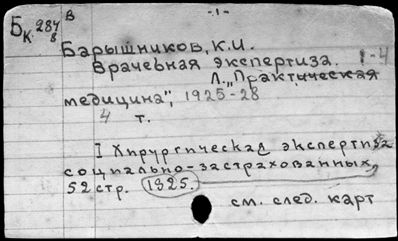 В
- 1 -
Бк 287/8
Барышников, К.И.
Врачебная экспертиза. 1-4
Л. „Практическая
медицина", 1925-28
4 т.
I Хирургическая экспертиза
социально-застрахованных,
52 стр. 1925.
см. след. карт